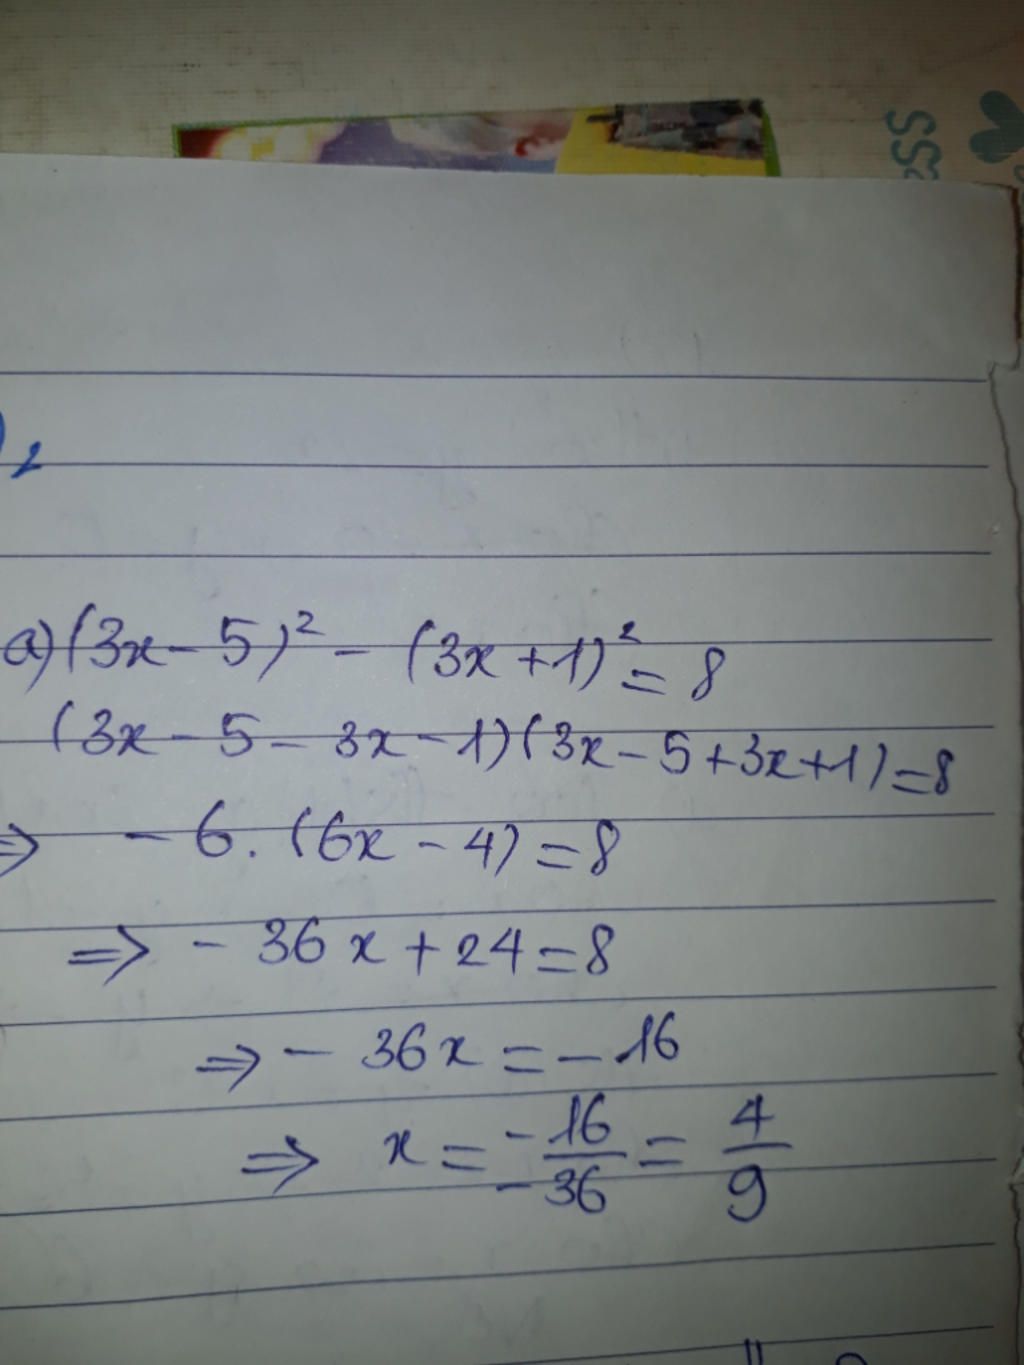 a) (3x - 5)² - (3x + 1)² = 8
(3x - 5 - 3x - 1)(3x - 5 + 3x + 1) = 8
⇒ - 6. (6x - 4) = 8
⇒ - 36x + 24 = 8
⇒ - 36x = - 16
⇒ x = -16/-36 = 4/9